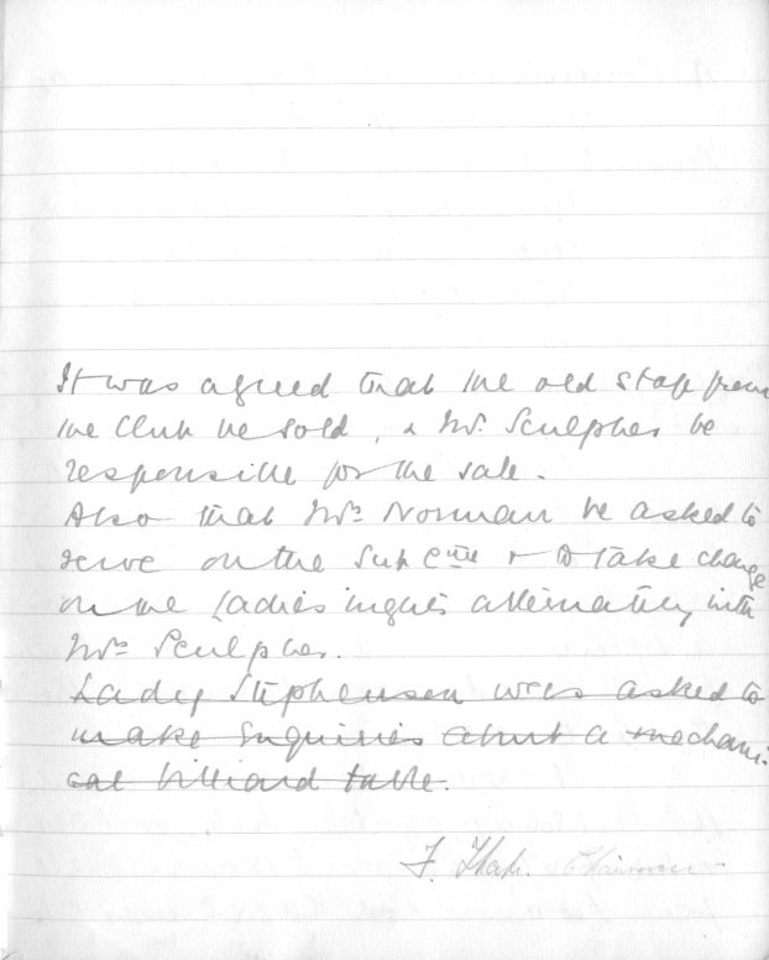 It was agreed that the old stage from
the Club be sold, & Mr. Sculpher be
responsible for the sale.
Also that Mrs Norman be asked to
serve on the Sub Cttee & to take charge
on the Ladies nights alternately with
Mrs Sculpher.
Lady Stephenson was asked to
make inquiries about a mechani-
cal billiard table.
F. Chairman